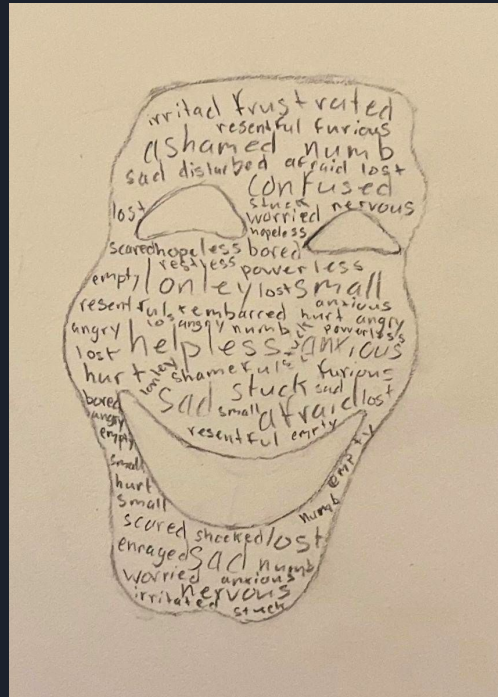 irritad frustrated
resentful furious
ashamed numb
sad disturbed afraid lost
confused
stuck
lost worried nervous
hopeless
scared hopeless bored
restless powerless
empty lonley lost small
resentful embarred hurt anxious
lost angry numb angry
angry powerless
lost helpless anxious
hurt lonley shameful furious
sad stuck sad
bored small afraid lost
angry resentful empty
empty empty
small
hurt
small numb
scared shocked lost
enraged sad numb
worried anxious
nervous
irritated stuck